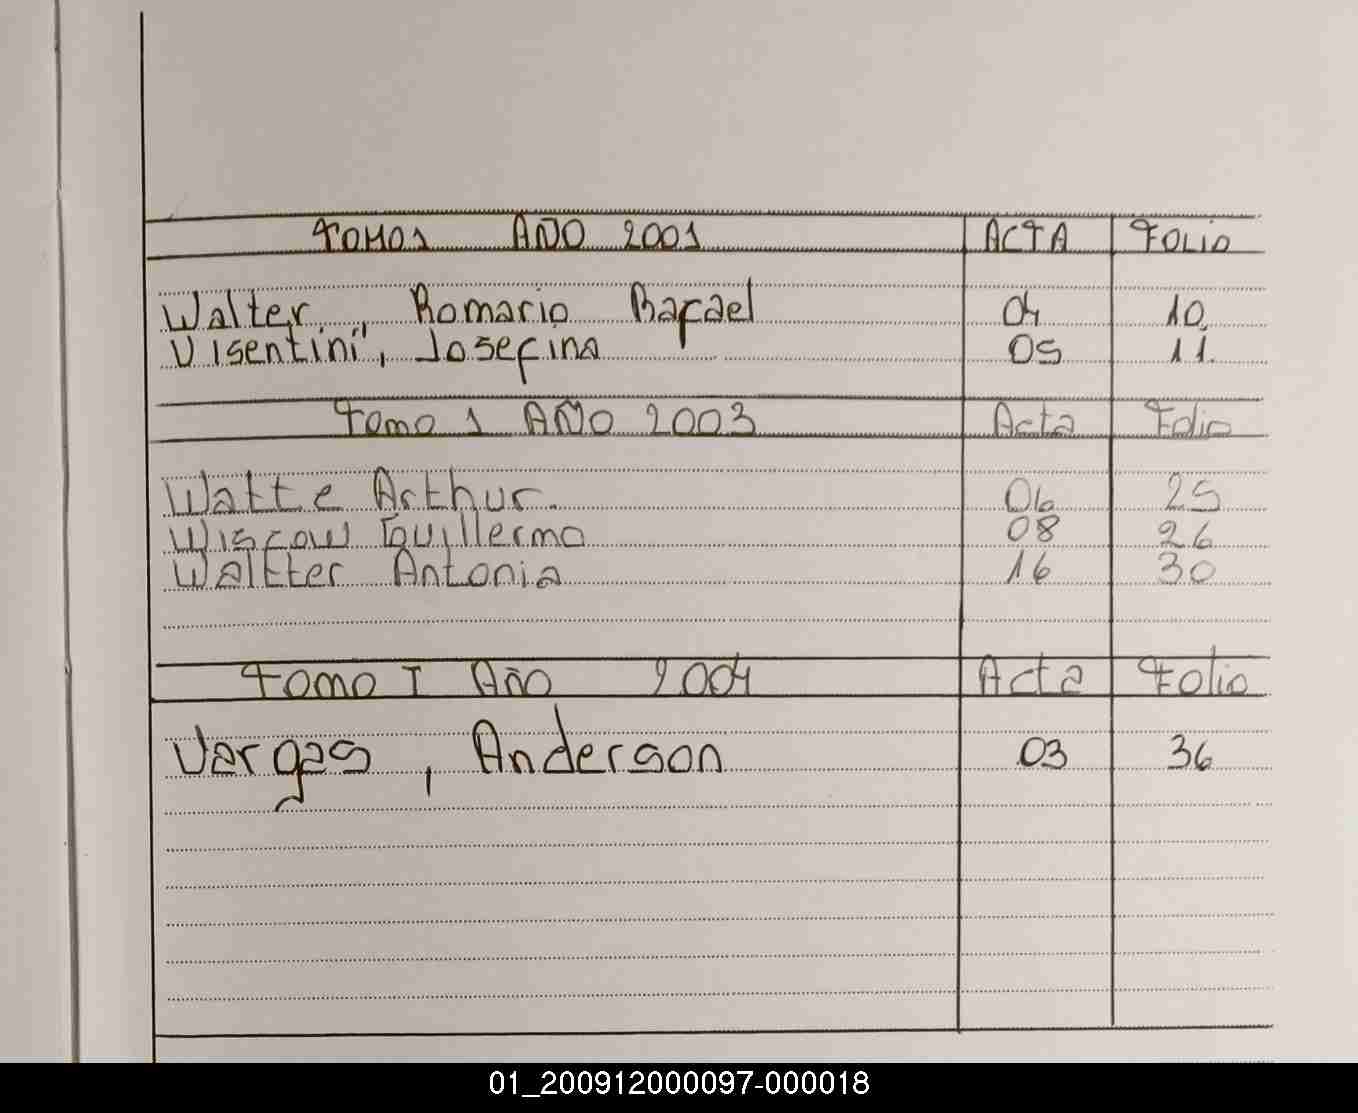 TOMO1 AÑO 2001 ACTA FOLIO
Walter, Romario Rafael 04 10
Visentini, Josefina 05 11
Tomo 1 AÑO 2003 Acta Folio
Watte Arthur. 06 25
Wiscow Guillermo 08 26
Waltter Antonia 16 30
Tomo I Año 2004 Acta Folio
Vargas, Anderson 03 36
01_200912000097-000018